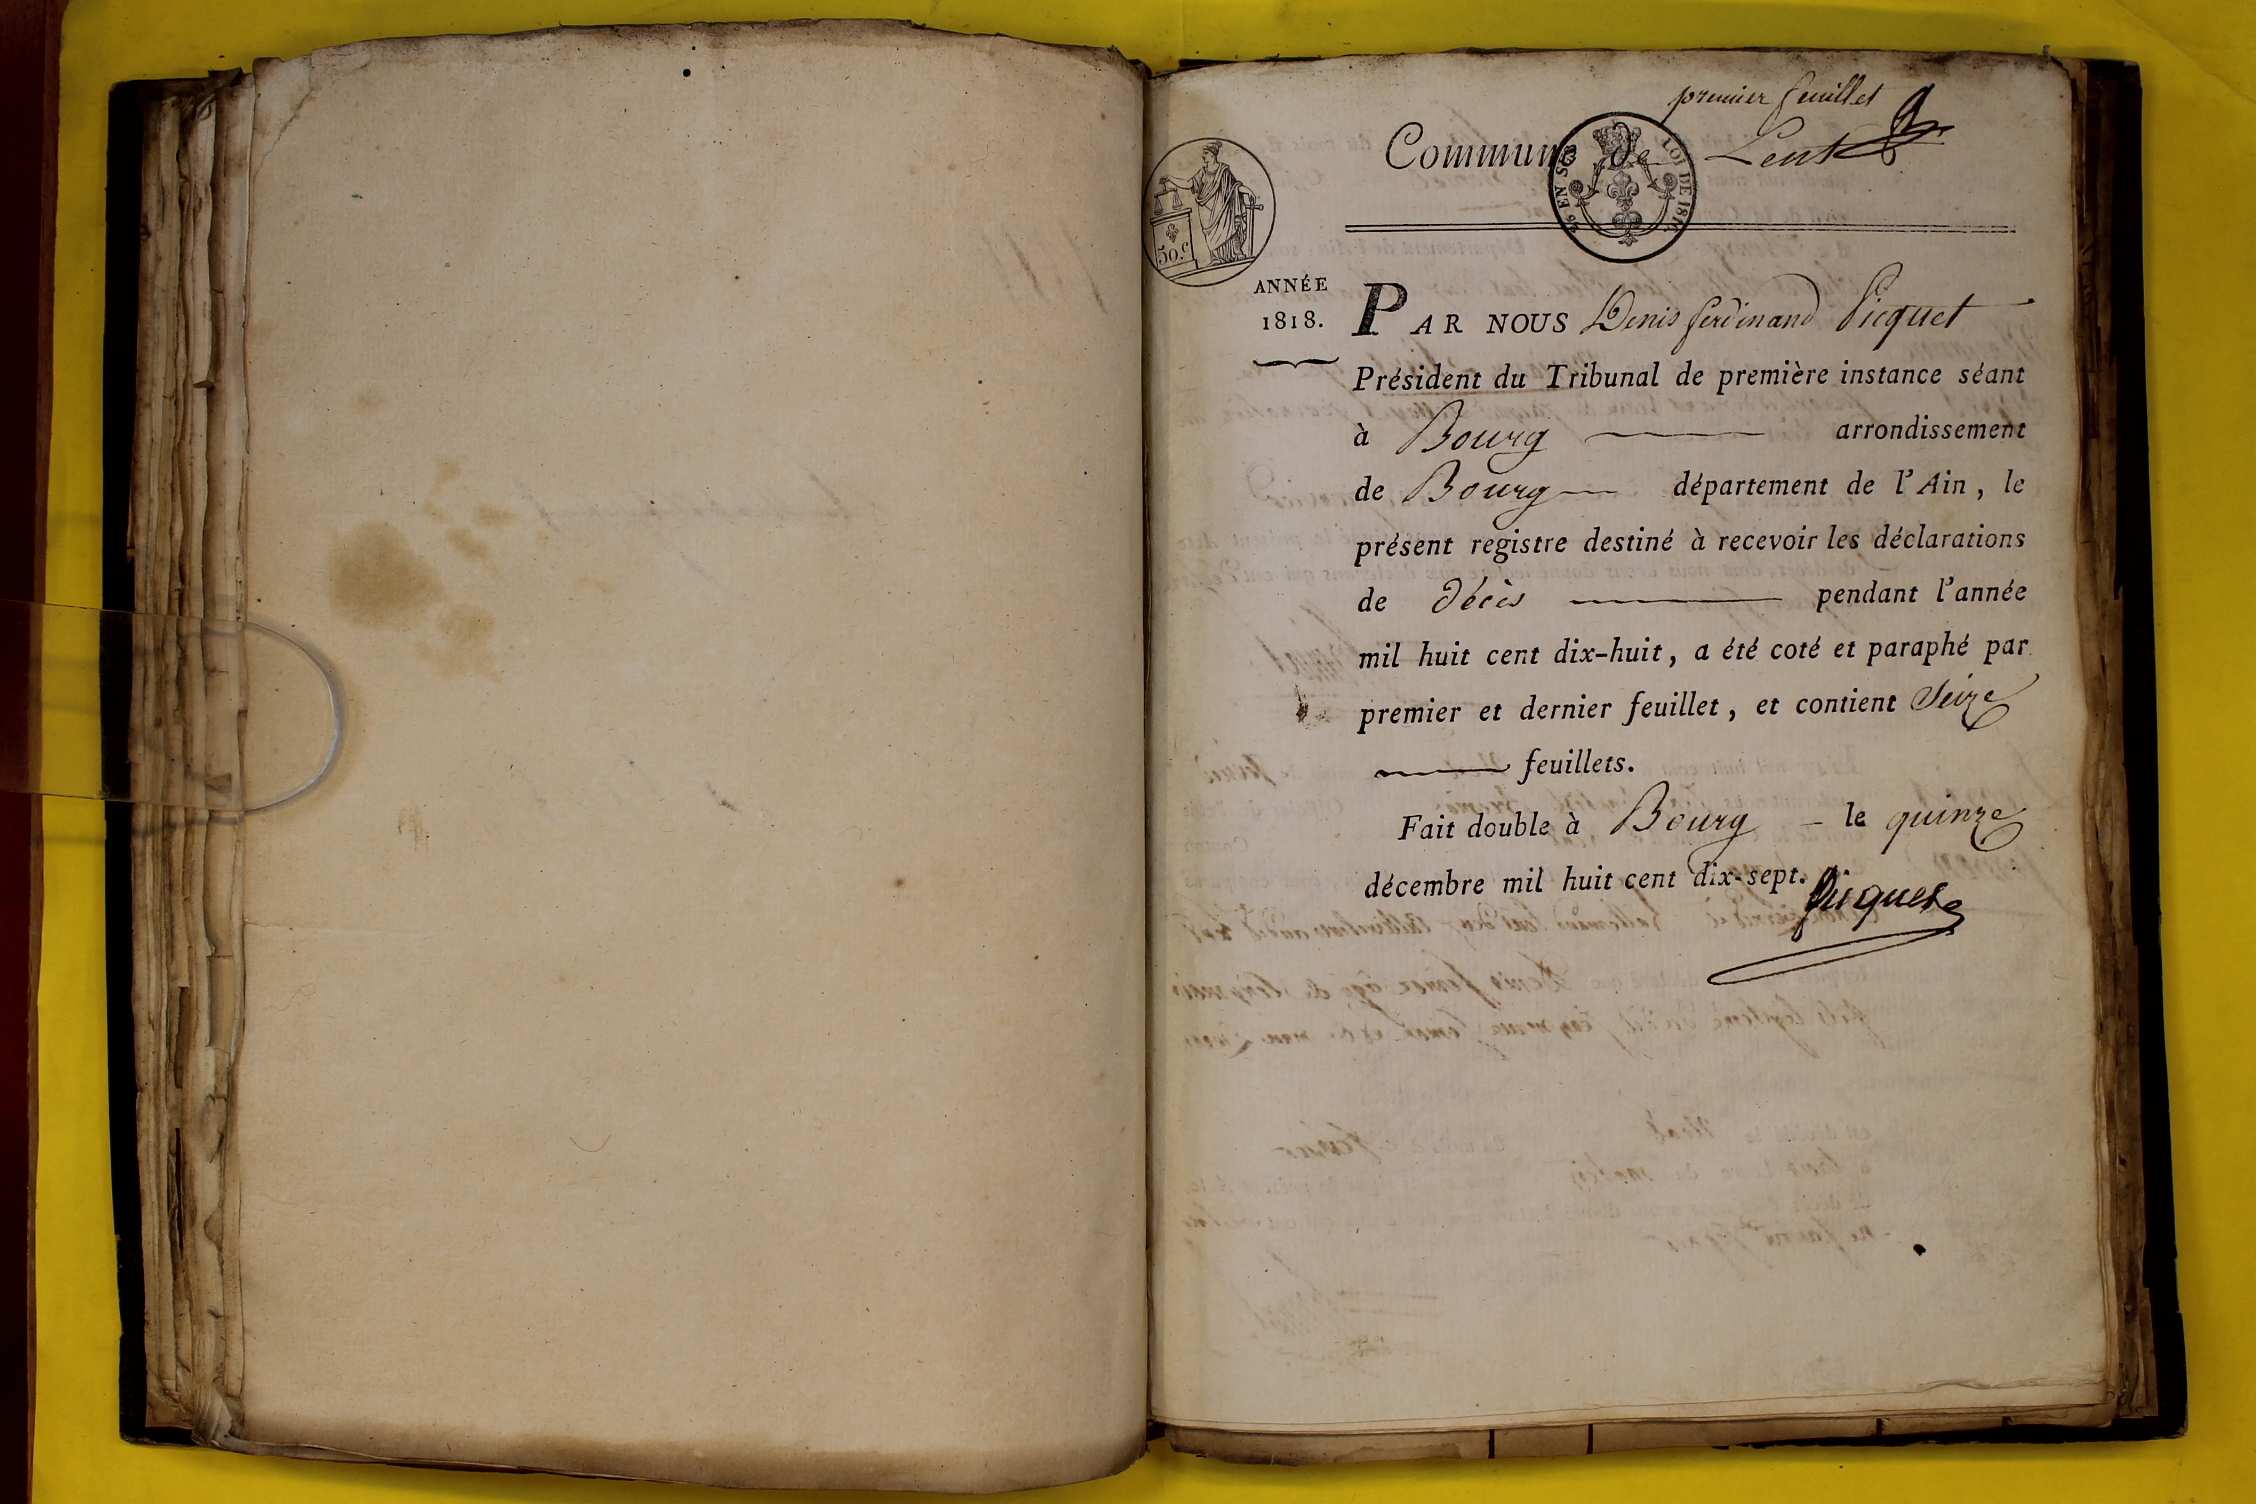 premier feuillet
Commune de Lent
EN SUS
LOI DE 1816
50.c
ANNÉE
1818.
PAR NOUS Denis ferdinand Picquet
Président du Tribunal de première instance séant
à Bourg arrondissement
de Bourg département de l'Ain, le
présent registre destiné à recevoir les déclarations
de décès pendant l'année
mil huit cent dix-huit, a été coté et paraphé par
premier et dernier feuillet, et contient Seize
feuillets.
Fait double à Bourg - le quinze
décembre mil huit cent dix-sept.
Picquet